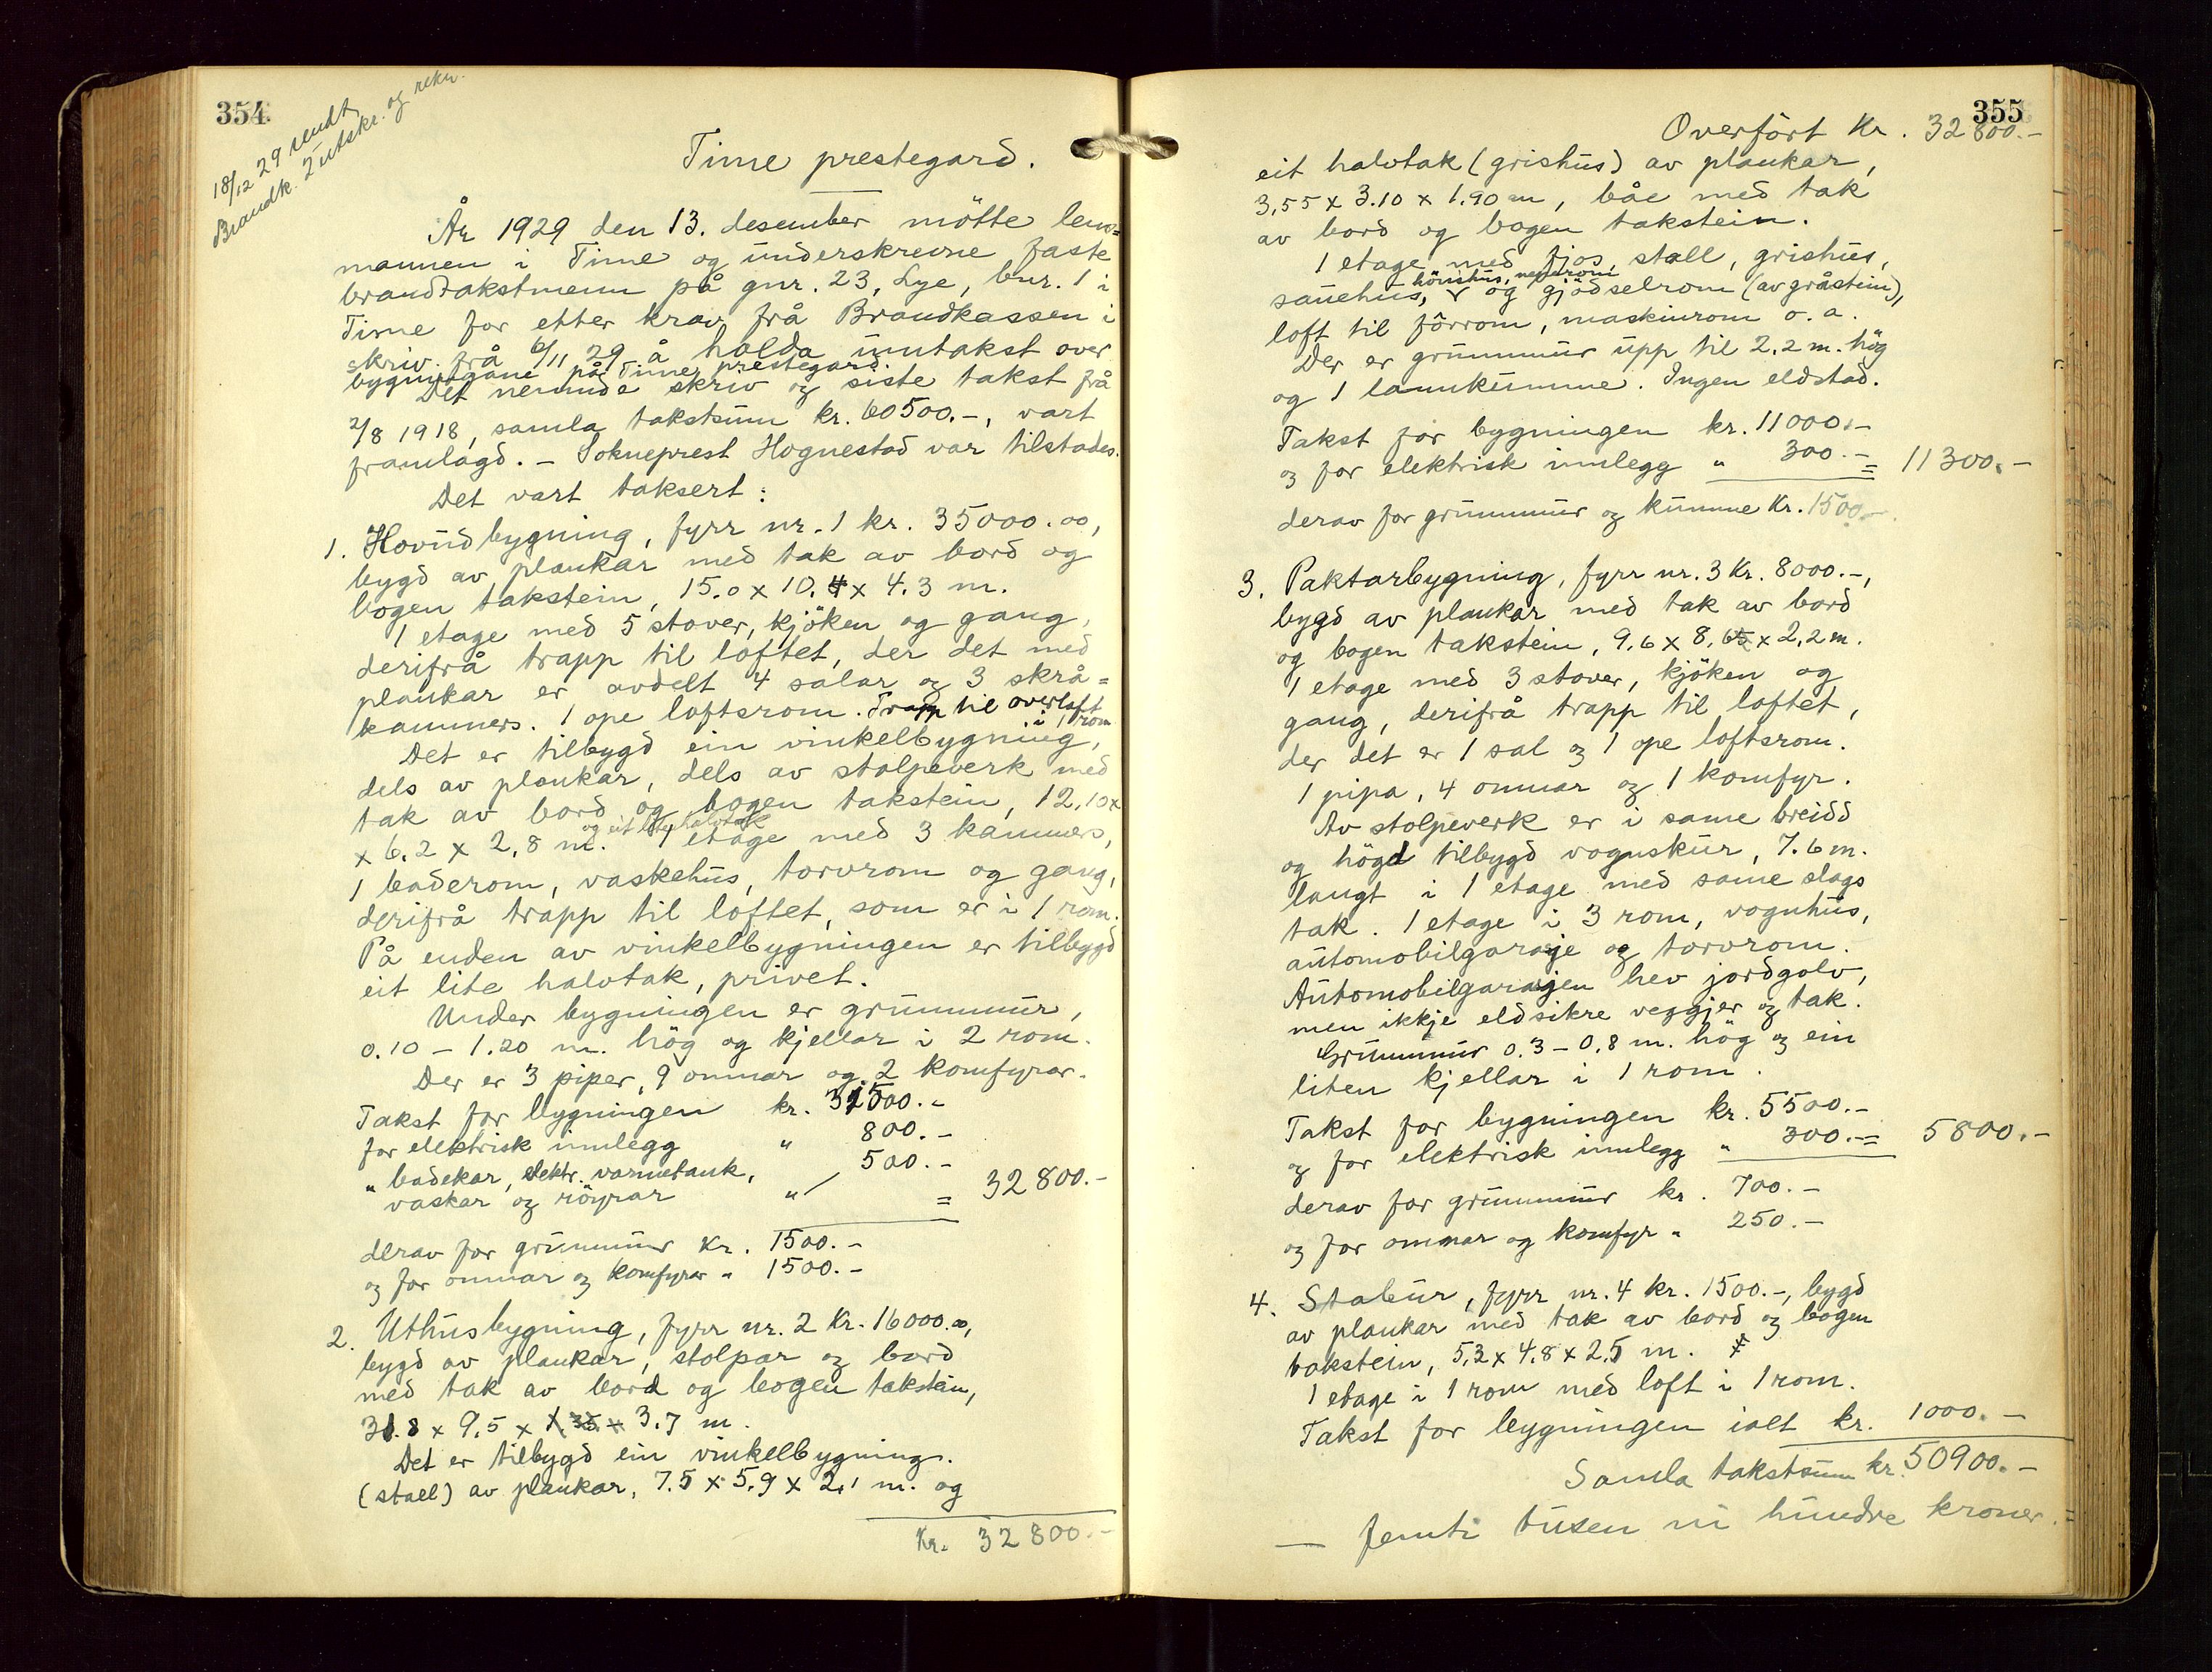 354
18/12 29 sendt
Brandk. 2 utskr. og rekn.
Time prestegard.
År 1929 den 13. desember mötte lens=
mannen i Time og underskrevne faste
brandtakstmenn på gnr. 23, Lye, bnr. 1 i
Time for etter krav frå Brandkassen i
skriv frå 6/11 29 å halda umtakst over
bygningane på Time prestegard.
Det nemnde skriv og siste takst frå
2/8 1918, samla takstsum kr. 60500.-, vart
framlagd. - Sokneprest Hognestad var tilstades.
Det vart taksert:
1. Hovudbygning, fyrr nr. 1 kr. 35000.00,
bygd av plankar med tak av bord og
bogen takstein, 15.0 x 10.4 x 4.3 m.
1 etage med 5 stover, kjöken og gang,
derifrå trapp til loftet, der det med
plankar er avdelt 4 salar og 3 skrå=
kammers. 1 ope loftsrom. Trapp til overloft
i 1 rom
Det er tilbygd ein vinkelbygning,
dels av plankar, dels av stolpeverk med
tak av bord og bogen takstein, 12,10 x
og eit lite halvtak
x 6.2 x 2,8 m. 1 etage med 3 kammers,
1 baderom, vaskehus, torvrom og gang,
derifrå trapp til loftet, som er i 1 rom.
På enden av vinkelbygningen er tilbygd
eit lite halvtak, privet.
Under bygningen er grunnmur,
0.10 - 1.20 m. hög og kjellar i 2 rom.
Der er 3 piper, 9 omnar og 2 komfyrar.
Takst for bygningen kr. 31500.-
for elektrisk innlegg " 800.-
" badekar, elektr. varmetank, 500.-
vaskar og röyrar " = 32800.-
derav for grunnmur Kr. 1500.-
og for omnar og komfyrar " 1500.-
2. Uthusbygning, fyrr nr. 2 Kr. 16000.00,
bygd av plankar, stolpar og bord
med tak av bord og bogen takstein,
31.8 x 9.5 x 3.7 m.
Det er tilbygd ein vinkelbygning.
(stall) av plankar, 7.5 x 5.9 x 2,1 m. og
Kr. 32800.-
355
Overfört Kr. 32800.-
eit halvtak (grishus) av plankar,
3,55 x 3.10 x 1.90 m, båe med tak
av bord og bogen takstein.
1 etage med fjos, stall, grishus,
hönshus, neperom
sauehus, v og gjödselrom (av gråstein),
loft til fôrrom, maskinrom o. a.
Der er grunnmur upp til 2.2 m. hög
og 1 lannkumme. Ingen eldstad.
Takst for bygningen kr. 11000.-
og for elektrisk innlegg " 300.- = 11300.-
derav for grunnmur og kumme Kr. 1500.-
3. Paktarbygning, fyrr nr. 3 Kr. 8000.-,
bygd av plankar med tak av bord
og bogen takstein, 9.6 x 8,65 x 2,2 m.
1 etage med 3 stover, kjöken og
gang, derifrå trapp til loftet,
der det er 1 sal og 1 ope loftsrom.
1 pipa, 4 omnar og 1 komfyr.
Av stolpeverk er i same breidd
og högd tilbygd vognskur, 7.6 m.
langt i 1 etage med same slags
tak. 1 etage i 3 rom, vognhus,
automobilgarasje og torvrom.
Automobilgarasjen hev jordgolv,
men ikkje eldsikre veggjer og tak.
Grunnmur 0.3 - 0.8 m. hög og ein
liten kjellar i 1 rom.
Takst for bygningen kr. 5500.-
og for elektrisk innlegg " 300.- = 5800.-
derav for grunnmur kr. 700.-
og for omnar og komfyr " 250.-
4. Stabur, fyrr nr. 4 kr. 1500.-, bygd
av plankar med tak av bord og bogen
takstein, 5,2 x 4.8 x 2,5 m.
1 etage i 1 rom med loft i 1 rom.
Takst for bygningen ialt kr. 1000.-
Samla takstsum kr. 50900.-
- femti tusen ni hundre kroner. =